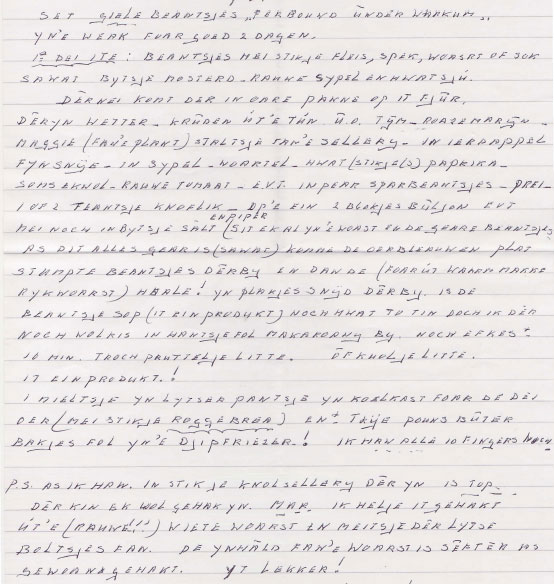 SET GIELE BEANTSJES "FERBOUND ÛNDER WAAKUM"
YN'E WEAK FOAR GOED 2 DAGEN.
1e DEI ITE: BEANTSJES MEI STIKJE FLEIS, SPEK, WOARST OF SOK
SAWAT BYTSJE MOSTERD - RAUWE SYPEL EN HWAT SJÚ.
DÊRNEI KOMT DER IN OARE PANNE OP IT FJÛR.
DÊR YN WETTER - KRÛDEN ÚT'E TÚN. Û.O. TYM - ROAZEMARYN -
MAGGIE (FAN'E PLANT) STALTSJE FAN'E SELLERY - IN IERAPPEL
FYN SNIJE - IN SYPEL - WOARTEL - HWAT (STIKJE(S) PAPRIKA -
SOMS EKNOL - RAUWE TOMAAT - EVT. IN PEAR SPARBEANTSJES - PREI -
1 OF 2 TEANTSJE KNOFLIK - OP'E EIN 2 BLOKJES BÛLJON EVT
MEI NOCH IN BYTSJE SÂLT EN PIPER (SIT EK AL YN'E WOAST EN DE GEARE BEANTSJES
AS DIT ALLES GEAR IS (SAWAT) KOMME DE OERBLEAUWEN PLAT
STUMPTE BEANTSJES DÊRBY EN DAN DE (FOARÚT WAARM MAKKE
RYKWOARST) HEALE! YN PLAKJES SNIJD DÊRBY. IS DE
BEANTSJE SOP (IT EINPRODUKT) NOCH HWAT TO TIN DOCH IK DÊR
NOCH WOLRIS IN HANTSJEFOL MAKAROANY BY. NOCH EFKES ±
10 MIN. TROCH PRUTTELJE LITTE. ÔFKUOLJE LITTE.
IT EINPRODUKT.!
1 MIELTSJE YN LYTSER PANTSJE YN KOELKAST FOAR DE DEI
OER (MEI STIKJE ROGGEBREA) EN ± TRIJE POUNS BÛTER
BAKJES FOL YN'E DJIPFRIEZER.! IK HAW ALLE 10 FINGERS NOCH
P.S. AS IK HAW. IN STIKJE KNOLSELLERY DÊR YN IS TOP.
DÊR KIN EK WOL GEHAK YN. MAR. IK HELJE IT GEHAKT
ÚT'E (RAUWE!!) WIETE WOARST EN MEITSJE DÊR LYTSE
BOLTSJES FAN. DE YNHÂLD FAN'E WOARST IS SÊFTER AS
GEWOAN GEHAKT. YT LEKKER!